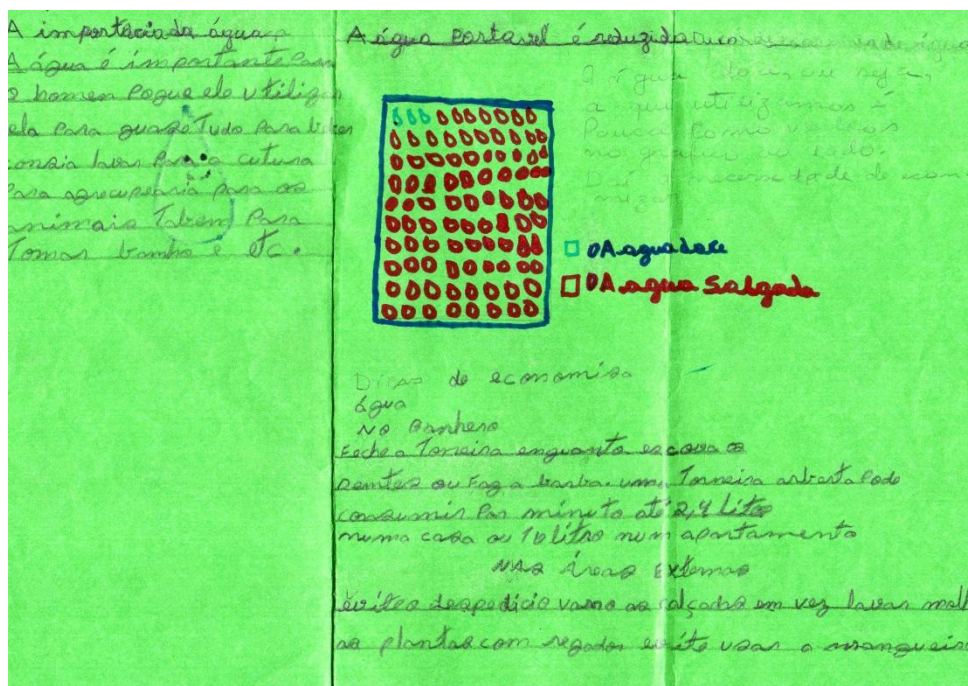 A importàcia da água
A água é importante Para
o homen Poque ele utiliza
ela Para quaze Tudo Para beber
conzia lavar Para a cutura
Para agrucupearia para os
animais Tabem Para
Tomar banho e etc.
A água Portavel é reduzida
a água doce, ou seja,
a que utilizamos é
Pouca como vemos
no gráfico ao lado.
Daí a necessidade de econo
mizar
A agua doce
A agua Salgada
Dicas de economiza
água
No Banhero
Feche a Torneira enquanto escova os
dentes ou Faz a barba. uma Torneira arberta Pode
consumir Por minuto até 2,4 Litro
numa casa ou 16 litro num apartamento
NAS Áreas Externas
évites despedicio varno as calçadas em vez lavar molh
as plantas com regador evite usar a mangueir